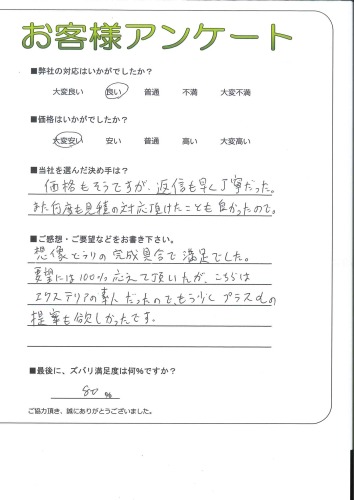 お客様アンケート
■弊社の対応はいかがでしたか？
大変良い 良い 普通 不満 大変不満
■価格はいかがでしたか？
大変安い 安い 普通 高い 大変高い
■当社を選んだ決め手は？
価格もそうですが、返信も早く丁寧だった。
また何度も見積の対応頂けたことも良かったので。
■ご感想・ご要望などをお書き下さい。
想像どうりの完成具合で満足でした。
要望には100%応えて頂いたが、こちらは
エクステリアの素人だったので、もう少しプラスαの
提案も欲しかったです。
■最後に、ズバリ満足度は何%ですか？
80 %
ご協力頂き、誠にありがとうございました。